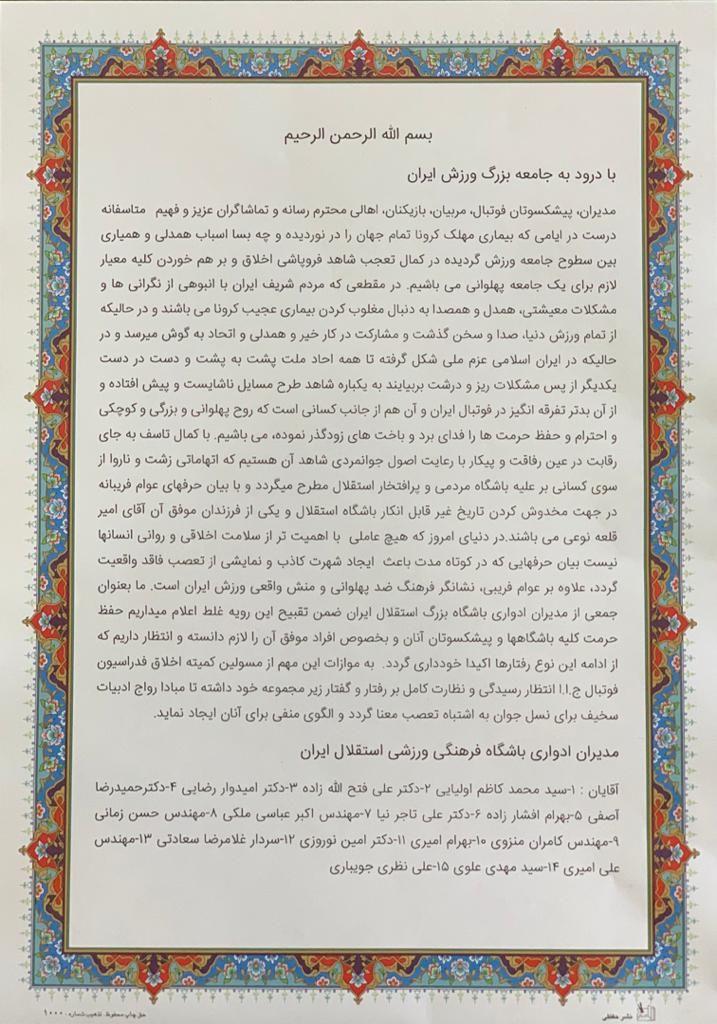 بسم الله الرحمن الرحیم
با درود به جامعه بزرگ ورزش ایران
مدیران، پیشکسوتان فوتبال، مربیان، بازیکنان، اهالی محترم رسانه و تماشاگران عزیز و فهیم متاسفانه
درست در ایامی که بیماری مهلک کرونا تمام جهان را در نوردیده و چه بسا اسباب همدلی و همیاری
بین سطوح جامعه ورزش گردیده در کمال تعجب شاهد فروپاشی اخلاق و بر هم خوردن کلیه معیار
لازم برای یک جامعه پهلوانی می باشیم. در مقطعی که مردم شریف ایران با انبوهی از نگرانی ها و
مشکلات معیشتی، همدل و همصدا به دنبال مغلوب کردن بیماری عجیب کرونا می باشند و در حالیکه
از تمام ورزش دنیا، صدا و سخن گذشت و مشارکت در کار خیر و همدلی و اتحاد به گوش میرسد و در
حالیکه در ایران اسلامی عزم ملی شکل گرفته تا همه احاد ملت پشت به پشت و دست در دست
یکدیگر از پس مشکلات ریز و درشت بربیایند به یکباره شاهد طرح مسایل ناشایست و پیش افتاده و
از آن بدتر تفرقه انگیز در فوتبال ایران و آن هم از جانب کسانی است که روح پهلوانی و بزرگی و کوچکی
و احترام و حفظ حرمت ها را فدای برد و باخت های زودگذر نموده، می باشیم. با کمال تاسف به جای
رقابت در عین رفاقت و پیکار با رعایت اصول جوانمردی شاهد آن هستیم که اتهاماتی زشت و ناروا از
سوی کسانی بر علیه باشگاه مردمی و پرافتخار استقلال مطرح میگردد و با بیان حرفهای عوام فریبانه
در جهت مخدوش کردن تاریخ غیر قابل انکار باشگاه استقلال و یکی از فرزندان موفق آن آقای امیر
قلعه نوعی می باشند.در دنیای امروز که هیچ عاملی با اهمیت تر از سلامت اخلاقی و روانی انسانها
نیست بیان حرفهایی که در کوتاه مدت باعث ایجاد شهرت کاذب و نمایشی از تعصب فاقد واقعیت
گردد، علاوه بر عوام فریبی، نشانگر فرهنگ ضد پهلوانی و منش واقعی ورزش ایران است. ما بعنوان
جمعی از مدیران ادواری باشگاه بزرگ استقلال ایران ضمن تقبیح این رویه غلط اعلام میداریم حفظ
حرمت کلیه باشگاهها و پیشکسوتان آنان و بخصوص افراد موفق آن را لازم دانسته و انتظار داریم که
از ادامه این نوع رفتارها اکیدا خودداری گردد. به موازات این مهم از مسولین کمیته اخلاق فدراسیون
فوتبال ج.ا.ا انتظار رسیدگی و نظارت کامل بر رفتار و گفتار زیر مجموعه خود داشته تا مبادا رواج ادبیات
سخیف برای نسل جوان به اشتباه تعصب معنا گردد و الگوی منفی برای آنان ایجاد نماید.
مدیران ادواری باشگاه فرهنگی ورزشی استقلال ایران
آقایان : ۱-سید محمد کاظم اولیایی ۲-دکتر علی فتح الله زاده ۳-دکتر امیدوار رضایی ۴-دکترحمیدرضا
آصفی ۵-بهرام افشار زاده ۶-دکتر علی تاجر نیا ۷-مهندس اکبر عباسی ملکی ۸-مهندس حسن زمانی
۹-مهندس کامران منزوی ۱۰-بهرام امیری ۱۱-دکتر امین نوروزی ۱۲-سردار غلامرضا سعادتی ۱۳-مهندس
علی امیری ۱۴-سید مهدی علوی ۱۵-علی نظری جویباری
نشر حفظی
حق چاپ محفوظ. تذهیب شماره: ۱۰۰۰